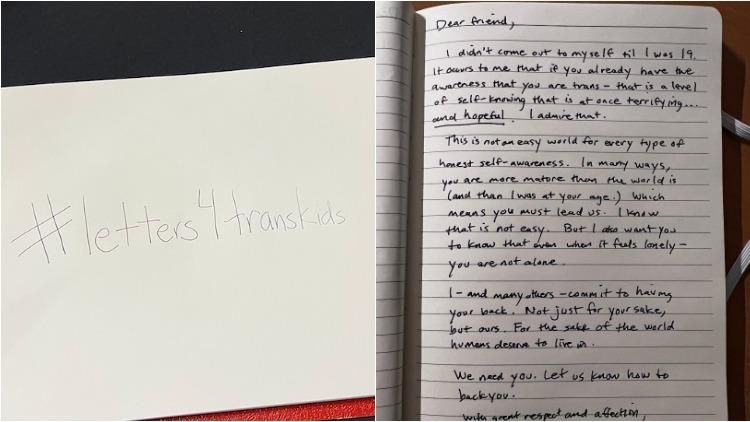 #letters4transkids
Dear friend,
I didn't come out to myself til I was 19.
It occurs to me that if you already have the
awareness that you are trans - that is a level
of self-knowing that is at once terrifying...
and hopeful. I admire that.
This is not an easy world for every type of
honest self-awareness. In many ways,
you are more mature than the world is
(and than I was at your age.) Which
means you must lead us. I know
that is not easy. But I also want you
to know that even when it feels lonely -
you are not alone.
I - and many others - commit to having
your back. Not just for your sake,
but ours. For the sake of the world
humans deserve to live in.
We need you. Let us know how to
back you.
With great respect and affection,